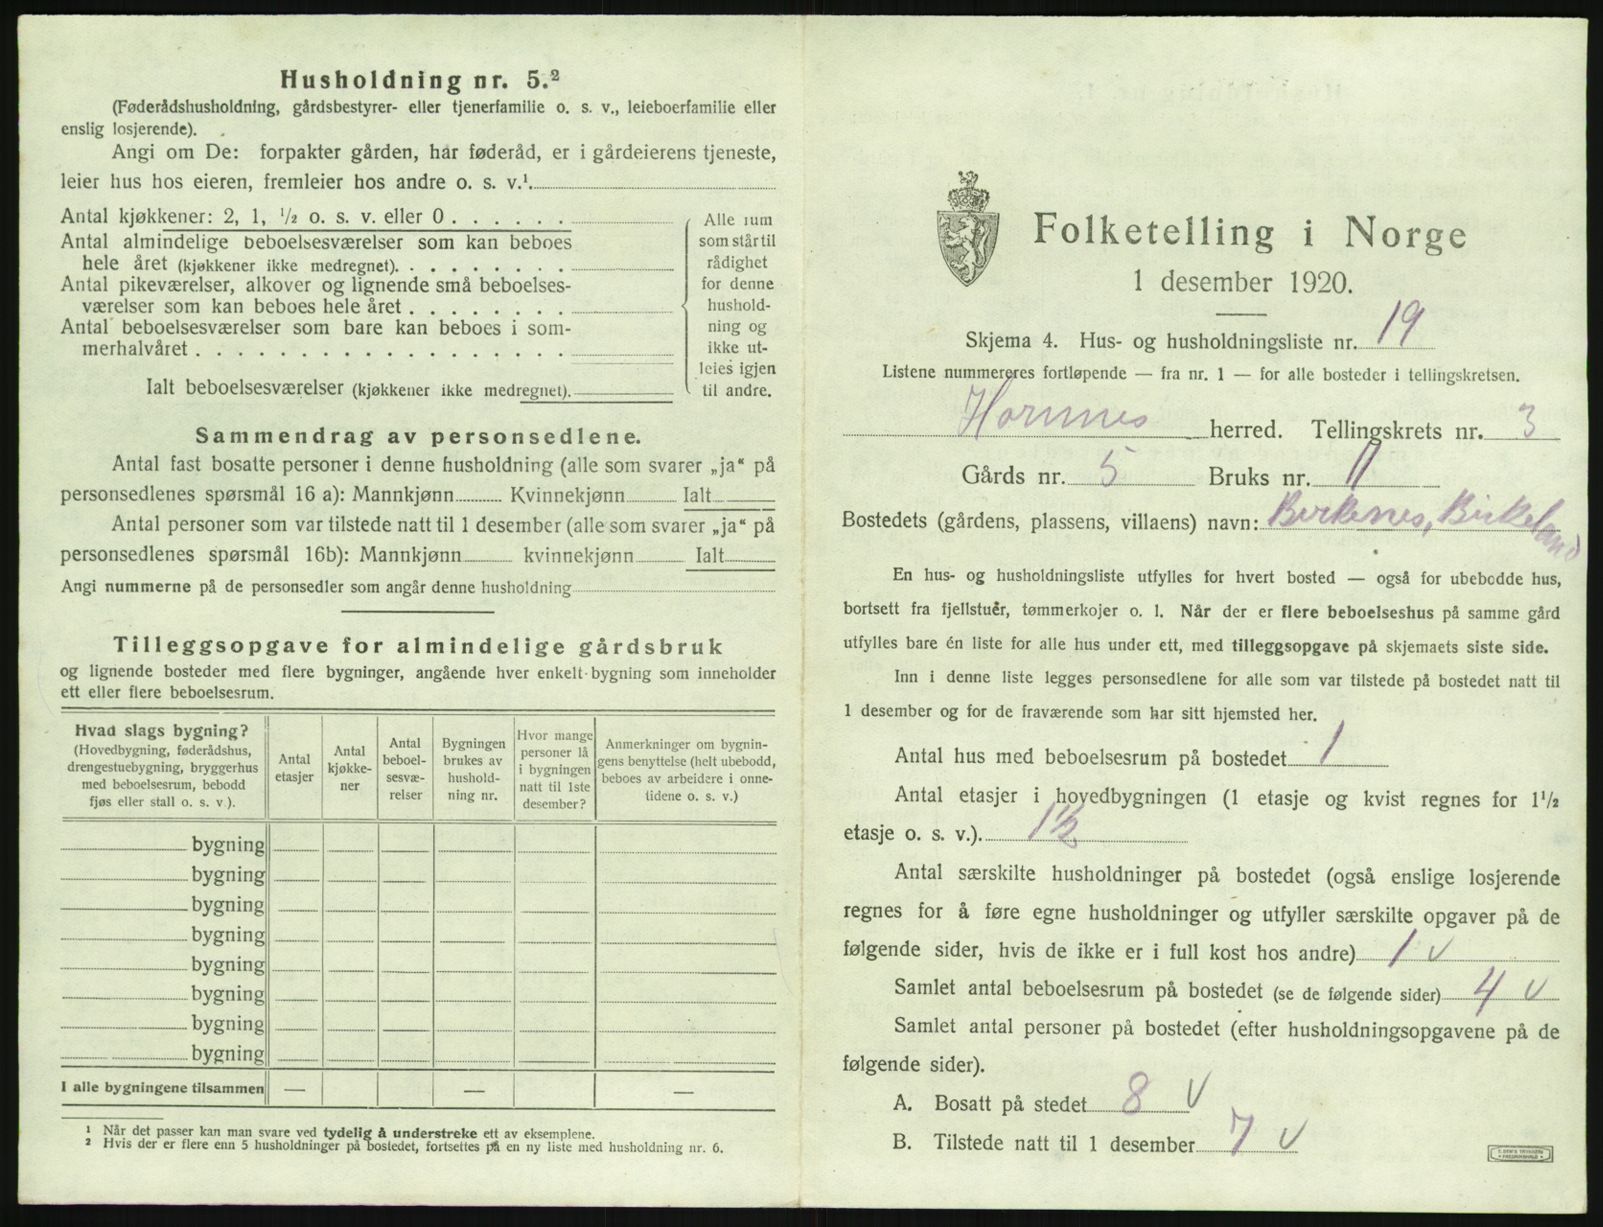 Husholdning nr. 5.²
(Føderådshusholdning, gårdsbestyrer- eller tjenerfamilie o. s. v., leieboerfamilie eller
enslig losjerende).
Angi om De: forpakter gården, har føderåd, er i gårdeierens tjeneste,
leier hus hos eieren, fremleier hos andre o. s. v.¹
Antal kjøkkener: 2, 1, ½ o. s. v. eller 0
Antal almindelige beboelsesværelser som kan beboes
hele året (kjøkkener ikke medregnet).
Antal pikeværelser, alkover og lignende små beboelses-
værelser som kan beboes hele året
Antal beboelsesværelser som bare kan beboes i som-
merhalvåret
Ialt beboelsesværelser (kjøkkener ikke medregnet).
Alle rum
som står til
rådighet
for denne
hushold-
ning og
ikke ut-
leies igjen
til andre.
Sammendrag av personsedlene.
Antal fast bosatte personer i denne husholdning (alle som svarer „ja“ på
personsedlenes spørsmål 16 a): Mannkjønn Kvinnekjønn Ialt
Antal personer som var tilstede natt til 1 desember (alle som svarer „ja“ på
personsedlenes spørsmål 16b): Mannkjønn kvinnekjønn Ialt
Angi nummerne på de personsedler som angår denne husholdning
Tilleggsopgave for almindelige gårdsbruk
og lignende bosteder med flere bygninger, angående hver enkelt bygning som inneholder
ett eller flere beboelsesrum.
Hvad slags bygning?
(Hovedbygning, føderådshus,
drengestuebygning, bryggerhus
med beboelsesrum, bebodd
fjøs eller stall o. s. v.).
Antal
etasjer
Antal
kjøkke-
ner
Antal
beboel-
sesvæ-
relser
Bygningen
brukes av
hushold-
ning nr.
Hvor mange
personer lå
i bygningen
natt til 1ste
desember?
Anmerkninger om bygnin-
gens benyttelse (helt ubebodd,
beboes av arbeidere i onne-
tidene o. s. v.)
bygning
bygning
bygning
bygning
bygning
bygning
bygning
bygning
I alle bygningene tilsammen — — —
¹ Når det passer kan man svare ved tydelig å understreke ett av eksemplene.
² Hvis der er flere enn 5 husholdninger på bostedet, fortsettes på en ny liste med husholdning nr. 6.
Folketelling i Norge
1 desember 1920.
Skjema 4. Hus- og husholdningsliste nr. 19
Listene nummereres fortløpende — fra nr. 1 — for alle bosteder i tellingskretsen.
Hornnes herred. Tellingskrets nr. 3
Gårds nr. 5 Bruks nr. 11
Bostedets (gårdens, plassens, villaens) navn: Birkenes, Birkeland
En hus- og husholdningsliste utfylles for hvert bosted — også for ubebodde hus,
bortsett fra fjellstuer, tømmerkojer o. l. Når der er flere beboelseshus på samme gård
utfylles bare én liste for alle hus under ett, med tilleggsopgave på skjemaets siste side.
Inn i denne liste legges personsedlene for alle som var tilstede på bostedet natt til
1 desember og for de fraværende som har sitt hjemsted her.
Antal hus med beboelsesrum på bostedet 1
Antal etasjer i hovedbygningen (1 etasje og kvist regnes for 1½
etasje o. s. v.). 1½
Antal særskilte husholdninger på bostedet (også enslige losjerende
regnes for å føre egne husholdninger og utfyller særskilte opgaver på de
følgende sider, hvis de ikke er i full kost hos andre) 1 v
Samlet antal beboelsesrum på bostedet (se de følgende sider) 4 v
Samlet antal personer på bostedet (efter husholdningsopgavene på de
følgende sider).
A. Bosatt på stedet 8 v
B. Tilstede natt til 1 desember 7 v